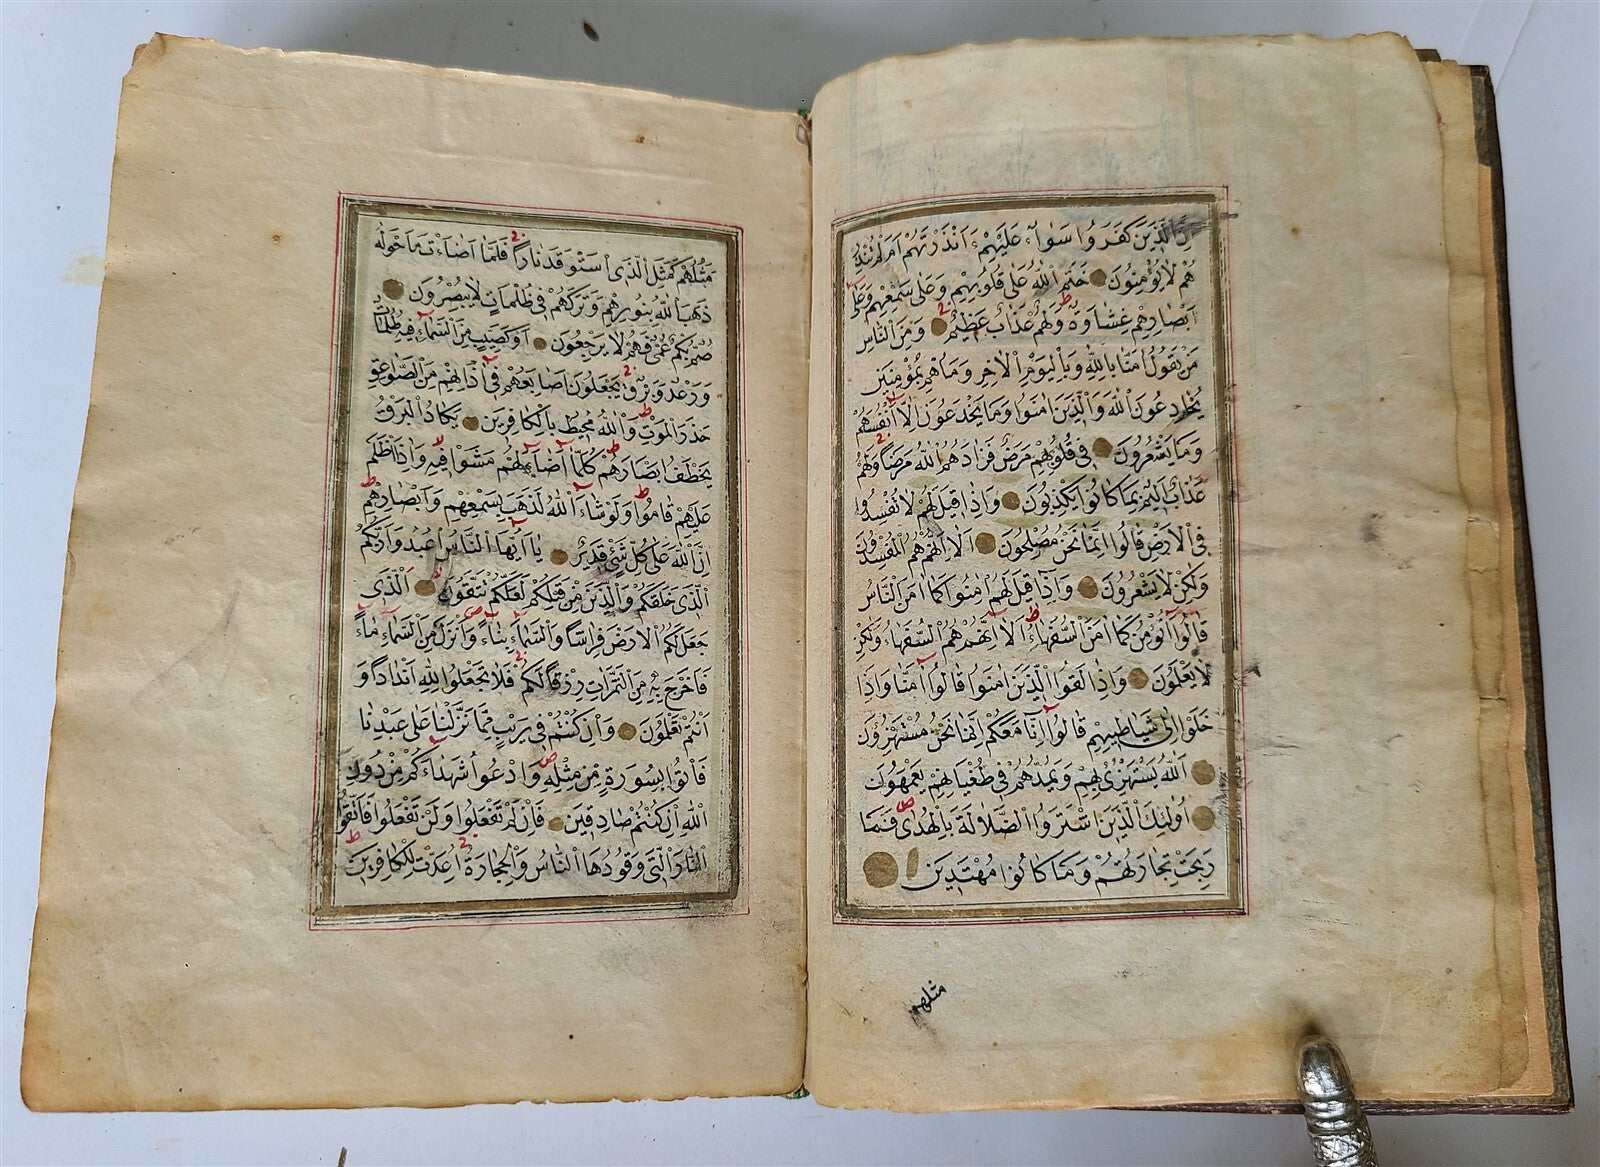 اِنَّ الَّذينَ كَفَرُوا سَوَاءٌ عَلَيْهِمْ ءَاَنْذَرْتَهُمْ اَمْ لَمْ تُنْذِرْ
هُمْ لَا يُؤْمِنُونَ خَتَمَ اللّٰهُ عَلٰى قُلُوبِهِمْ وَعَلٰى سَمْعِهِمْ وَعَلٰى
اَبْصَارِهِمْ غِشَاوَةٌ ط وَلَهُمْ عَذَابٌ عَظِيمٌ وَمِنَ النَّاسِ
مَنْ يَقُولُ اٰمَنَّا بِاللّٰهِ وَبِالْيَوْمِ الْاٰخِرِ وَمَا هُمْ بِمُؤْمِنِينَ
يُخَادِعُونَ اللّٰهَ وَالَّذِينَ اٰمَنُوا وَمَا يَخْدَعُونَ اِلَّا اَنْفُسَهُمْ
وَمَا يَشْعُرُونَ فِى قُلُوبِهِمْ مَرَضٌ فَزَادَهُمُ اللّٰهُ مَرَضًا وَلَهُمْ
عَذَابٌ اَلِيمٌ بِمَا كَانُوا يَكْذِبُونَ وَاِذَا قِيلَ لَهُمْ لَا تُفْسِدُوا
فِى الْاَرْضِ قَالُوا اِنَّمَا نَحْنُ مُصْلِحُونَ اَلَا اِنَّهُمْ هُمُ الْمُفْسِدُونَ
وَلٰكِنْ لَا يَشْعُرُونَ وَاِذَا قِيلَ لَهُمْ اٰمِنُوا كَمَا اٰمَنَ النَّاسُ
قَالُوا اَنُؤْمِنُ كَمَا اٰمَنَ السُّفَهَاءُ ط اَلَا اِنَّهُمْ هُمُ السُّفَهَاءُ وَلٰكِنْ
لَا يَعْلَمُونَ وَاِذَا لَقُوا الَّذِينَ اٰمَنُوا قَالُوا اٰمَنَّا وَاِذَا
خَلَوْا اِلٰى شَيَاطِينِهِمْ قَالُوا اِنَّا مَعَكُمْ اِنَّمَا نَحْنُ مُسْتَهْزِؤُنَ
اَللّٰهُ يَسْتَهْزِئُ بِهِمْ وَيَمُدُّهُمْ فِى طُغْيَانِهِمْ يَعْمَهُونَ
اُولٰئِكَ الَّذِينَ اشْتَرَوُا الضَّلَالَةَ بِالْهُدٰى ص فَمَا
رَبِحَتْ تِجَارَتُهُمْ وَمَا كَانُوا مُهْتَدِينَ
مثلهم
مَثَلُهُمْ كَمَثَلِ الَّذِى اسْتَوْقَدَ نَارًا فَلَمَّا اَضَاءَتْ مَا حَوْلَهُ
ذَهَبَ اللّٰهُ بِنُورِهِمْ وَتَرَكَهُمْ فِى ظُلُمَاتٍ لَا يُبْصِرُونَ
صُمٌّ بُكْمٌ عُمْىٌ فَهُمْ لَا يَرْجِعُونَ اَوْ كَصَيِّبٍ مِنَ السَّمَاءِ فِيهِ ظُلُمَاتٌ
وَرَعْدٌ وَبَرْقٌ يَجْعَلُونَ اَصَابِعَهُمْ فِى اٰذَانِهِمْ مِنَ الصَّوَاعِقِ
حَذَرَ الْمَوْتِ ط وَاللّٰهُ مُحِيطٌ بِالْكَافِرِينَ يَكَادُ الْبَرْقُ
يَخْطَفُ اَبْصَارَهُمْ ط كُلَّمَا اَضَاءَ لَهُمْ مَشَوْا فِيهِ وَاِذَا اَظْلَمَ
عَلَيْهِمْ قَامُوا ط وَلَوْ شَاءَ اللّٰهُ لَذَهَبَ بِسَمْعِهِمْ وَاَبْصَارِهِمْ ط
اِنَّ اللّٰهَ عَلٰى كُلِّ شَىْءٍ قَدِيرٌ يَا اَيُّهَا النَّاسُ اعْبُدُوا رَبَّكُمُ
الَّذِى خَلَقَكُمْ وَالَّذِينَ مِنْ قَبْلِكُمْ لَعَلَّكُمْ تَتَّقُونَ اَلَّذِى
جَعَلَ لَكُمُ الْاَرْضَ فِرَاشًا وَالسَّمَاءَ بِنَاءً ص وَاَنْزَلَ مِنَ السَّمَاءِ مَاءً
فَاَخْرَجَ بِهِ مِنَ الثَّمَرَاتِ رِزْقًا لَكُمْ فَلَا تَجْعَلُوا لِلّٰهِ اَنْدَادًا وَ
اَنْتُمْ تَعْلَمُونَ وَاِنْ كُنْتُمْ فِى رَيْبٍ مِمَّا نَزَّلْنَا عَلٰى عَبْدِنَا
فَأْتُوا بِسُورَةٍ مِنْ مِثْلِهِ ص وَادْعُوا شُهَدَاءَكُمْ مِنْ دُونِ
اللّٰهِ اِنْ كُنْتُمْ صَادِقِينَ فَاِنْ لَمْ تَفْعَلُوا وَلَنْ تَفْعَلُوا فَاتَّقُوا
النَّارَ الَّتِى وَقُودُهَا النَّاسُ وَالْحِجَارَةُ اُعِدَّتْ لِلْكَافِرِينَ ط